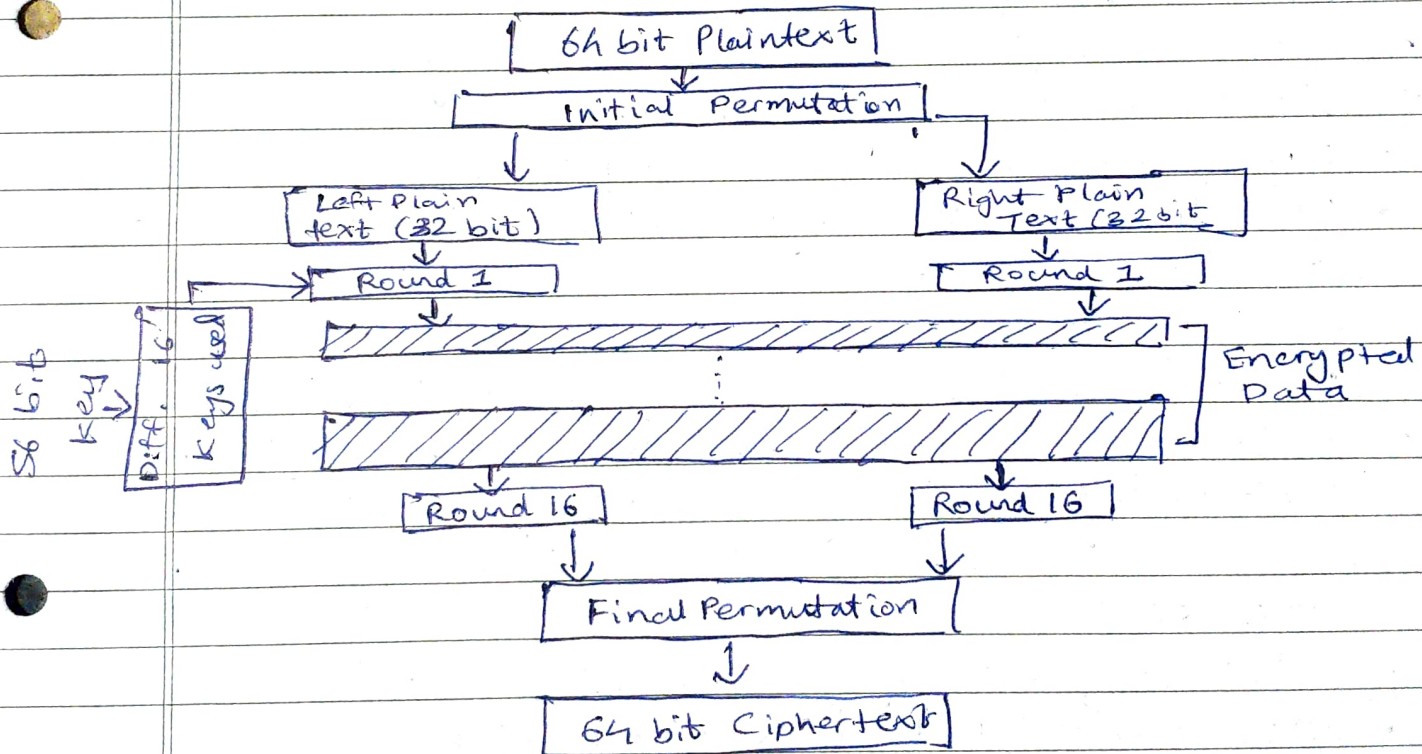 64 bit Plaintext
Initial Permutation
Left Plain
text (32 bit)
Right Plain
Text (32 bit
Round 1
Round 1
56 bit
key
Diff. 16
keys used
Encrypted
Data
Round 16
Round 16
Final Permutation
64 bit Ciphertext